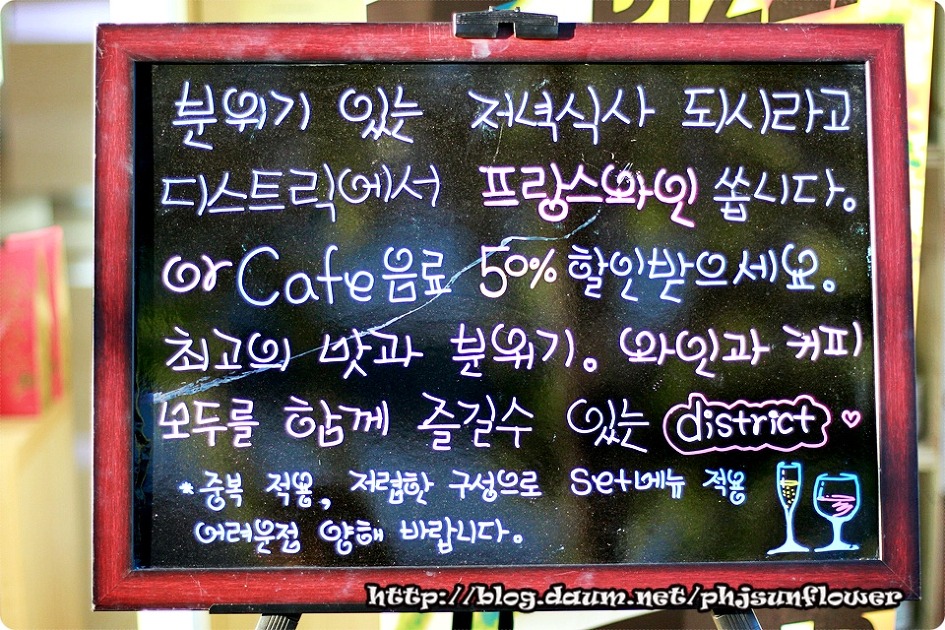 분위기 있는 저녁식사 되시라고
디스트릭에서 프랑스와인 쏩니다.
or Cafe음료 50% 할인받으세요.
최고의 맛과 분위기. 와인과 커피
모두를 함께 즐길수 있는 district ♡
*중복 적용, 저렴한 구성으로 Set메뉴 적용
어려운점 양해 바랍니다.
http://blog.daum.net/phjsunflower